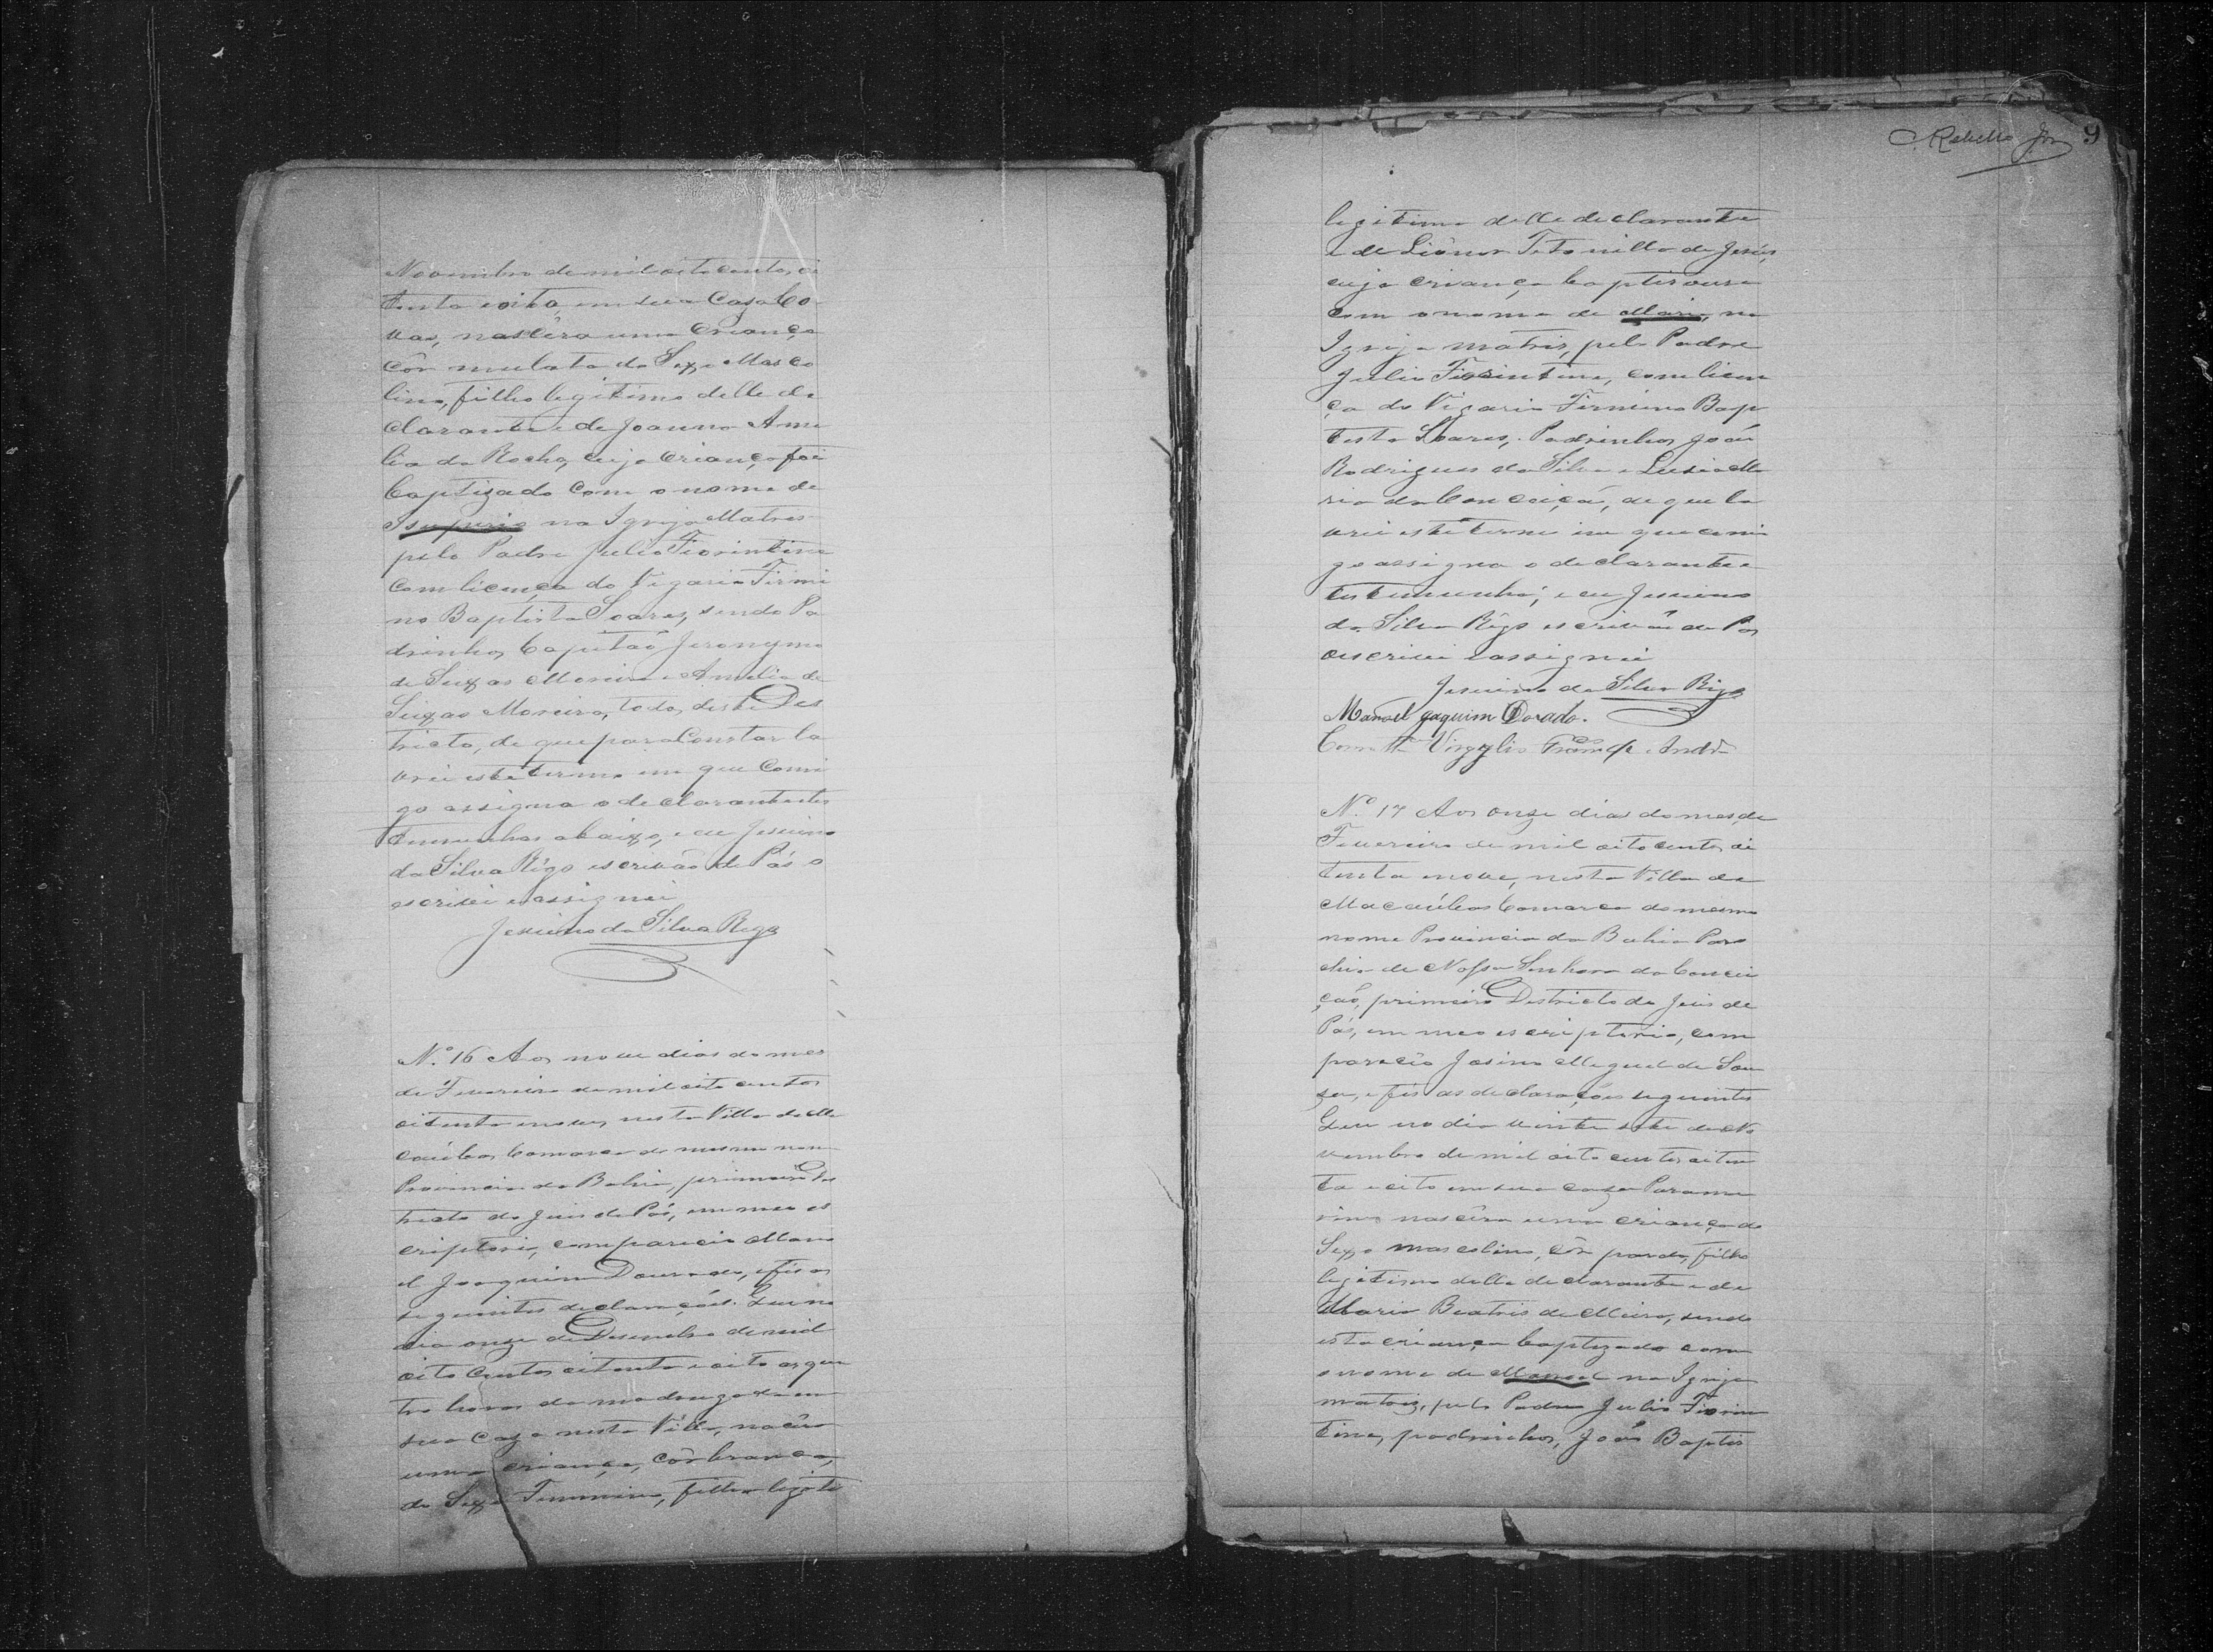 Novembro de mil oito centos oi
tenta e oito, em sua Casa Co
vas, nascêra uma Criança
côr mulata do Sexo Masco
lino, filho legitimo delle de
clarante e de Joanna Ame
lia da Rocha, cuja Criança foi
baptizado Com o nome de
na Igreja Matris
pelo Padre Julio Fiorintino
Com licença do Vigario Firmi
no Baptista Soares, sendo Pa
drinhos Capitaõ Jeronymo
de Seixas Moreira e Amelia de
Seixas Moreira, todos deste Des
tricto, de que para Constar la
vrei este termo em que Comi
go assigna o declarante e tes
temunhas abaixo, e eu Jesuino
da Silva Rêgo escrivão de Pás o
escrivi e assignei
Jesuino da Silva Rego
N.º 16 Aos nove dias do mes
de Fevereiro de mil oito centos
oitenta e nove, nesta Villa de Ma
caúbas Comarca do mesmo nome
Provincia da Bahia, primeiro Des
tricto do Juis de Pás, em meu es
criptorio, compareceu Mano
el Joaquim Dourado, e fis as
seguintes declarações. Que no
dia onze de Desembro de mil
oito Centos oitenta e oito as qua
tro horas da madrugada em
sua Caza nesta Villa, nacêra
uma criança, côr branca,
do Sexo Feminino, filha legiti
9
Rebello Jor
legitima delle declarante
e de Liônor de Jesús,
cuja criança baptisou-se
com o nome de Maria, na
Igreja matris, pelo Padre
Julio Fiorintino, com licen
ça do Vigario Firmino Bap
tista Soares, Padrinhos João
Rodrigues da Silva e Lusia Ma
ria da Conceiçaõ, de que la
vrei este termo em que comi
go assigna o declarante e
testemunha; e eu Jesuino
da Silva Rêgo escrivão de Pás
o escrivi e assignei
Jesuino da Silva Rêgo
Manoel Jaquim Dorado.
Como Tta Virgylio
N.º 17 Aos onze dias do mes de
Fevereiro de mil oito centos oi
tenta e nove, nesta Villa de
Macaúbas Comarca do mesmo
nome Provincia da Bahia Paro
chia de Nossa Senhora da Concei
çaõ, primeiro Destricto do Juis de
Pás, em meu escriptorio, com
pareceo Josino Meguel de Sou
za, e fis as declarações seguintes
Que no dia vinte e sete de No
vembro de mil oito centos oiten
ta e oito em sua caza
nascêra uma criança do
Sexo mascolino, côr parda, filho
legitimo delle declarante e de
Maria Beatris de Meira, sendo
esta criança baptizado com
o nome de Manoel na Igreja
matriz, pelo Padre Julio Fiorin
tino, padrinhos, João Baptis